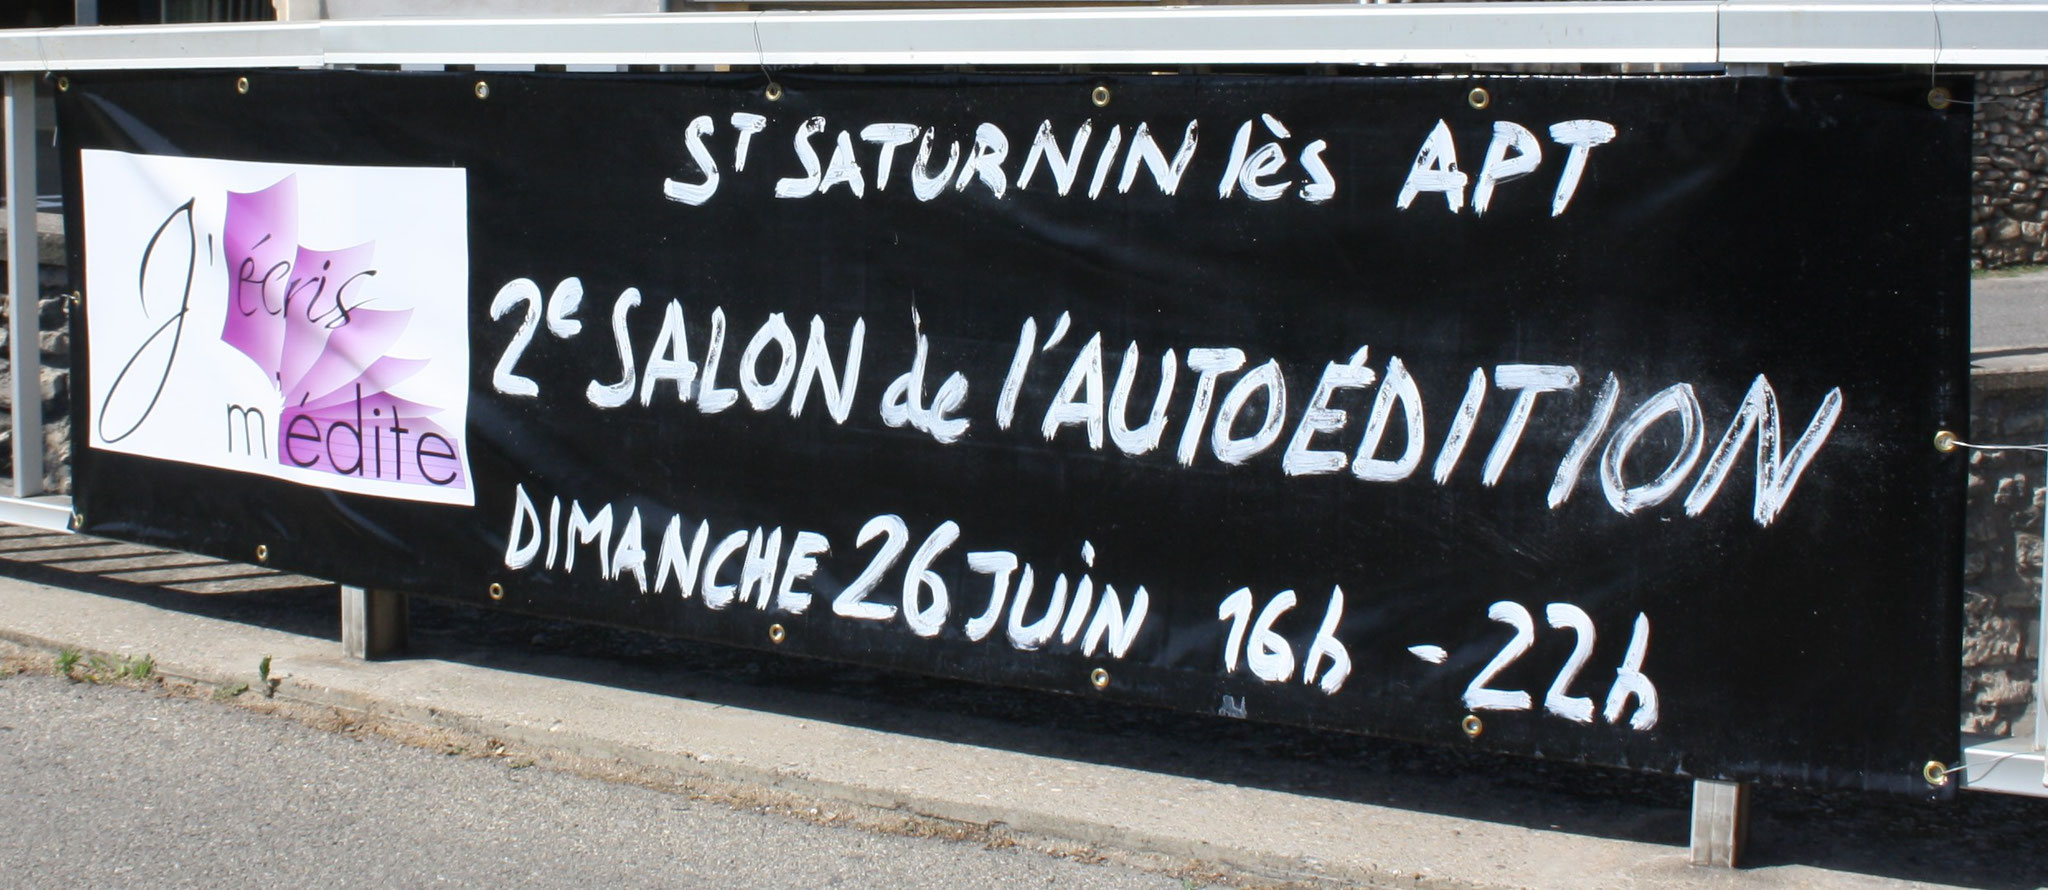 J'écris
m'édite
ST SATURNIN lès APT
2e SALON de l'AUTOÉDITION
DIMANCHE 26 JUiN 16h - 22h